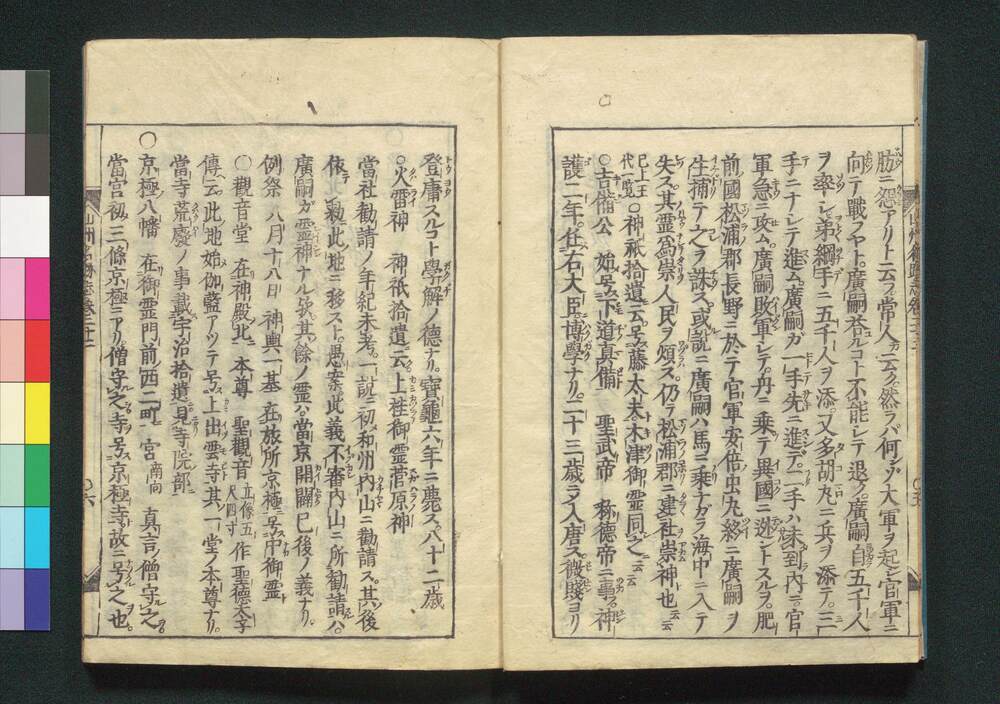 肪ニ怨アリト云フ常人ノ云ク然ラバ何ゾ大軍ヲ起シ官軍ニ
向テ戰フヤト廣嗣荅ルコト不能シテ退ク廣嗣自五千人
ヲ率シ弟綱手ニ五千人ヲ添又多胡丸ニ兵ヲ添テ三
手ニナシテ進ム廣嗣ガ一手先ニ進デ二手ハ未到內ニ官
軍急ニ攻ム廣嗣敗軍シテ舟ニ乗テ異國ニ逃ントスルヲ肥
前國松浦郡長野ニ於テ官軍安倍虫丸終ニ廣嗣ヲ
生捕テ之ヲ誅ス或說ニ廣嗣ハ馬ニ乗ナガラ海中ニ入テ
失ス其霊爲崇人民ヲ煩ス仍テ松浦郡ニ建社崇神也云云
已上王代一覧○神祇拾遺ニ云号藤大夫木津御霊同之云云
○吉備公 始号下道真備 聖武帝 称德帝ニ事神
護二年任右大臣博學ナリ二十三歳ニシテ入唐ス微賤ヨリ
登庸スルコト學解ノ德ナリ寶龜六年ニ薨ス八十二歳
○火雷神 神祇拾遺ニ云上桂御霊菅原神
當社勸請ノ年紀未考一說ニ初和州内山ニ勸請ス其後
依 敕此地ニ移スト愚案此義不審内山ニ所勸請ハ
廣嗣ガ霊神ナル欤其餘ノ霊ハ當京開闢已後ノ義ナリ
例祭 八月十八日 神輿一基 在旅所京極ニ号中御霊
○觀音堂 在神殿北 本尊 聖觀音 立像五尺四寸 作聖德太子
傳云此地始伽藍アツテ号ス上出雲寺其一堂ノ本尊ナリ
當寺荒廢ノ事載宇治拾遺見寺院部ニ
○京極八幡 在御霊門前ノ西二町 宮 南向 真言ノ僧守之
當宮初三條京極ニアリ僧守之寺号ス京極寺故ニ号之也
山州名跡志卷之二十二
○六